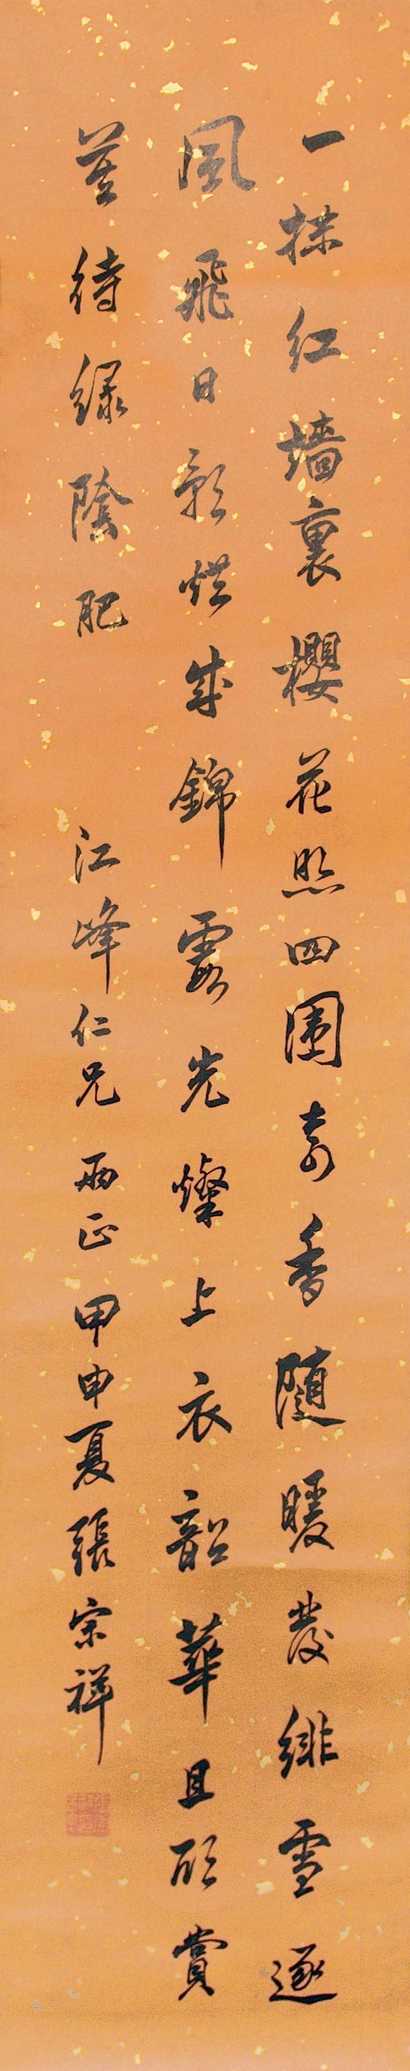 一抹红墙裏櫻花照四围奇香随暖發緋雪逐
風飛日影烘成錦霞光燦上衣韶華且欣賞
莫待绿陰肥 江峰仁兄 两正 甲申夏張宗祥